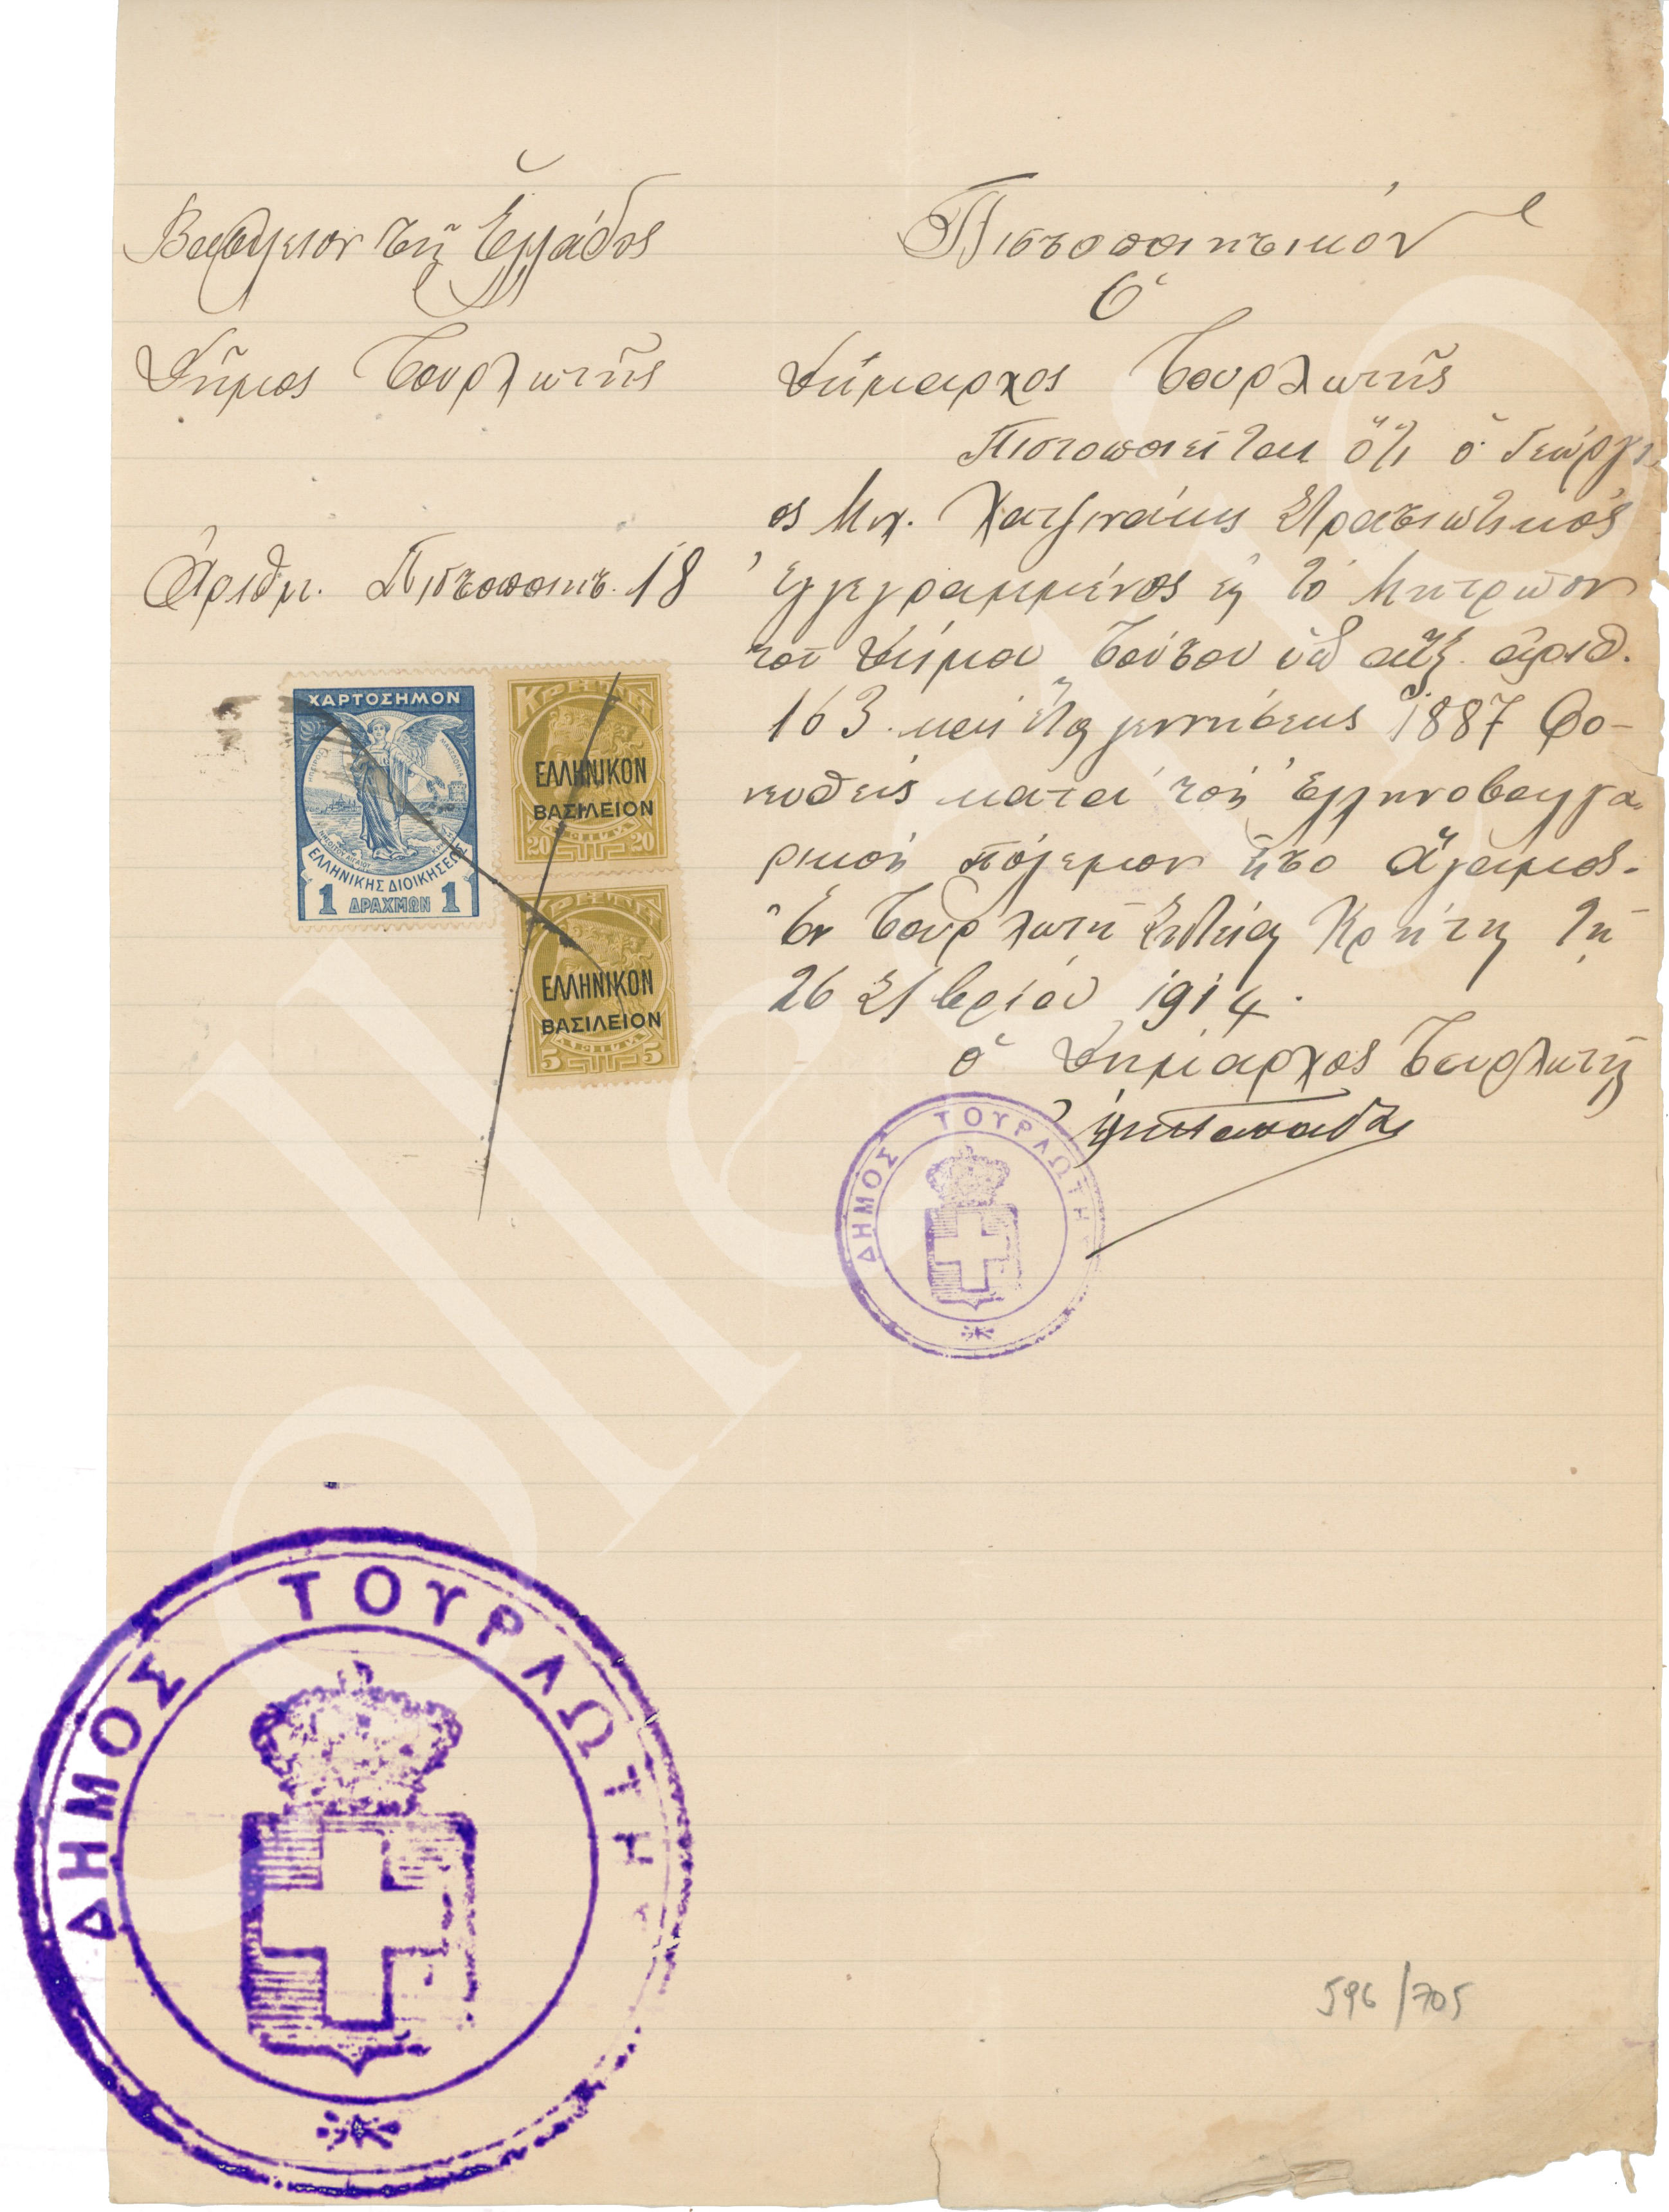 Βασίλειον τῆς Ἑλλάδος
Δῆμος Τουρλωτῆς
Ἀριθμ. Πιστοποιητ. 18
Πιστοποιητικόν
Ὁ
Δήμαρχος Τουρλωτῆς
Πιστοποιεῖται ὅτι ὁ Γεώργι
ος Μιχ. Χατζινάκης Στρατιωτικὸς
ἐγγεγραμμένος εἰς τὸ Μητρῶον
τοῦ Δήμου τούτου ὑπ αὔξ. ἀριθ.
163 καὶ ἔτος γεννήσεως 1887 Φο-
νευθεὶς κατὰ τὸν Ἑλληνοβουλγα
ρικὸν πόλεμον ἦτο ἄγαμος.
Ἐν Τουρλωτῇ Σητείας Κρήτης τῇ
26 Σ/βρίου 1914.
ὁ Δήμαρχος Τουρλωτῆς
ΧΑΡΤΟΣΗΜΟΝ
ΕΛΛΗΝΙΚΗΣ ΔΙΟΙΚΗΣΕΩΣ
1 ΔΡΑΧΜΩΝ 1
ΚΡΗΤΗ
ΕΛΛΗΝΙΚΟΝ
ΒΑΣΙΛΕΙΟΝ
20 20
ΛΕΠΤΑ
ΚΡΗΤΗ
ΕΛΛΗΝΙΚΟΝ
ΒΑΣΙΛΕΙΟΝ
ΛΕΠΤΑ
5 5
ΔΗΜΟΣ ΤΟΥΡΛΩΤΗ
ΔΗΜΟΣ ΤΟΥΡΛΩΤΗ
596/705